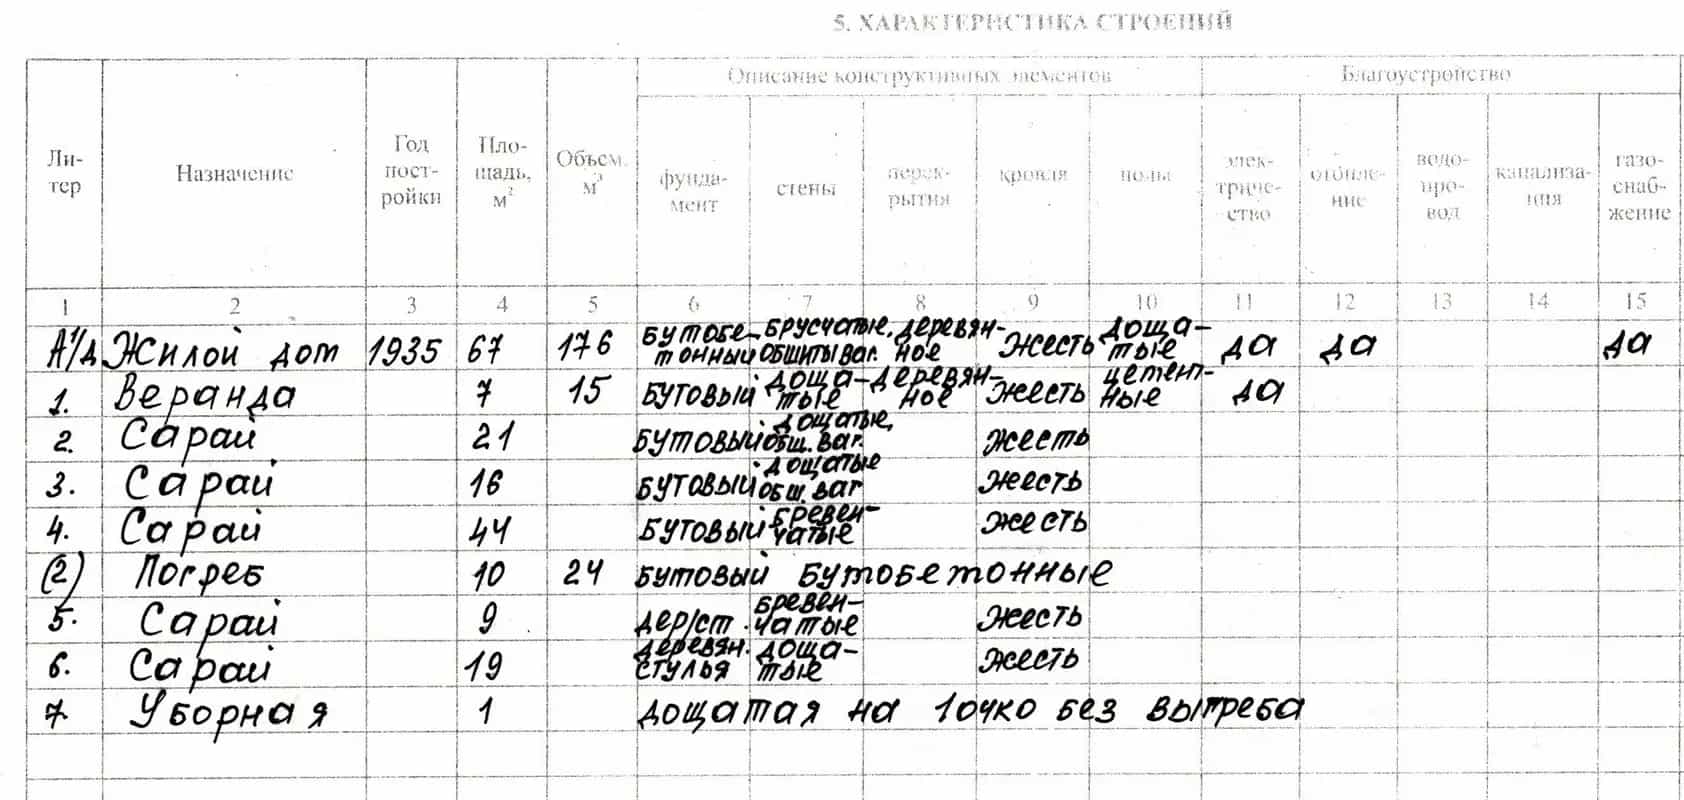 5. ХАРАКТЕРИСТИКА СТРОЕНИЙ
Ли-тер Назначение Год пост-ройки Пло-щадь, м² Объем. м³ Описание конструктивных элементов Благоустройство
фунда-мент стены перек-рытия кровля полы элек-триче-ство отопле-ние водо-про-вод канализа-ция газо-снаб-жение
1 2 3 4 5 6 7 8 9 10 11 12 13 14 15
А1/д Жилой дом 1935 67 176 бутобе-тонный брусчатые. обшиты ваг. деревян-ное жесть доща-тые да да да
1. Веранда 7 15 бутовый доща-тые деревян-ное жесть цемент-ные да
2. Сарай 21 бутовый дощатые, общ. ваг. жесть
3. Сарай 16 бутовый дощатые общ. ваг жесть
4. Сарай 44 бутовый бревен-чатые жесть
(2) Погреб 10 24 бутовый бутобетонные
5. Сарай 9 дер/ст. бревен-чатые жесть
6. Сарай 19 деревян. стулья доща-тые жесть
7 Уборная 1 дощатая на 1 очко без выгреба